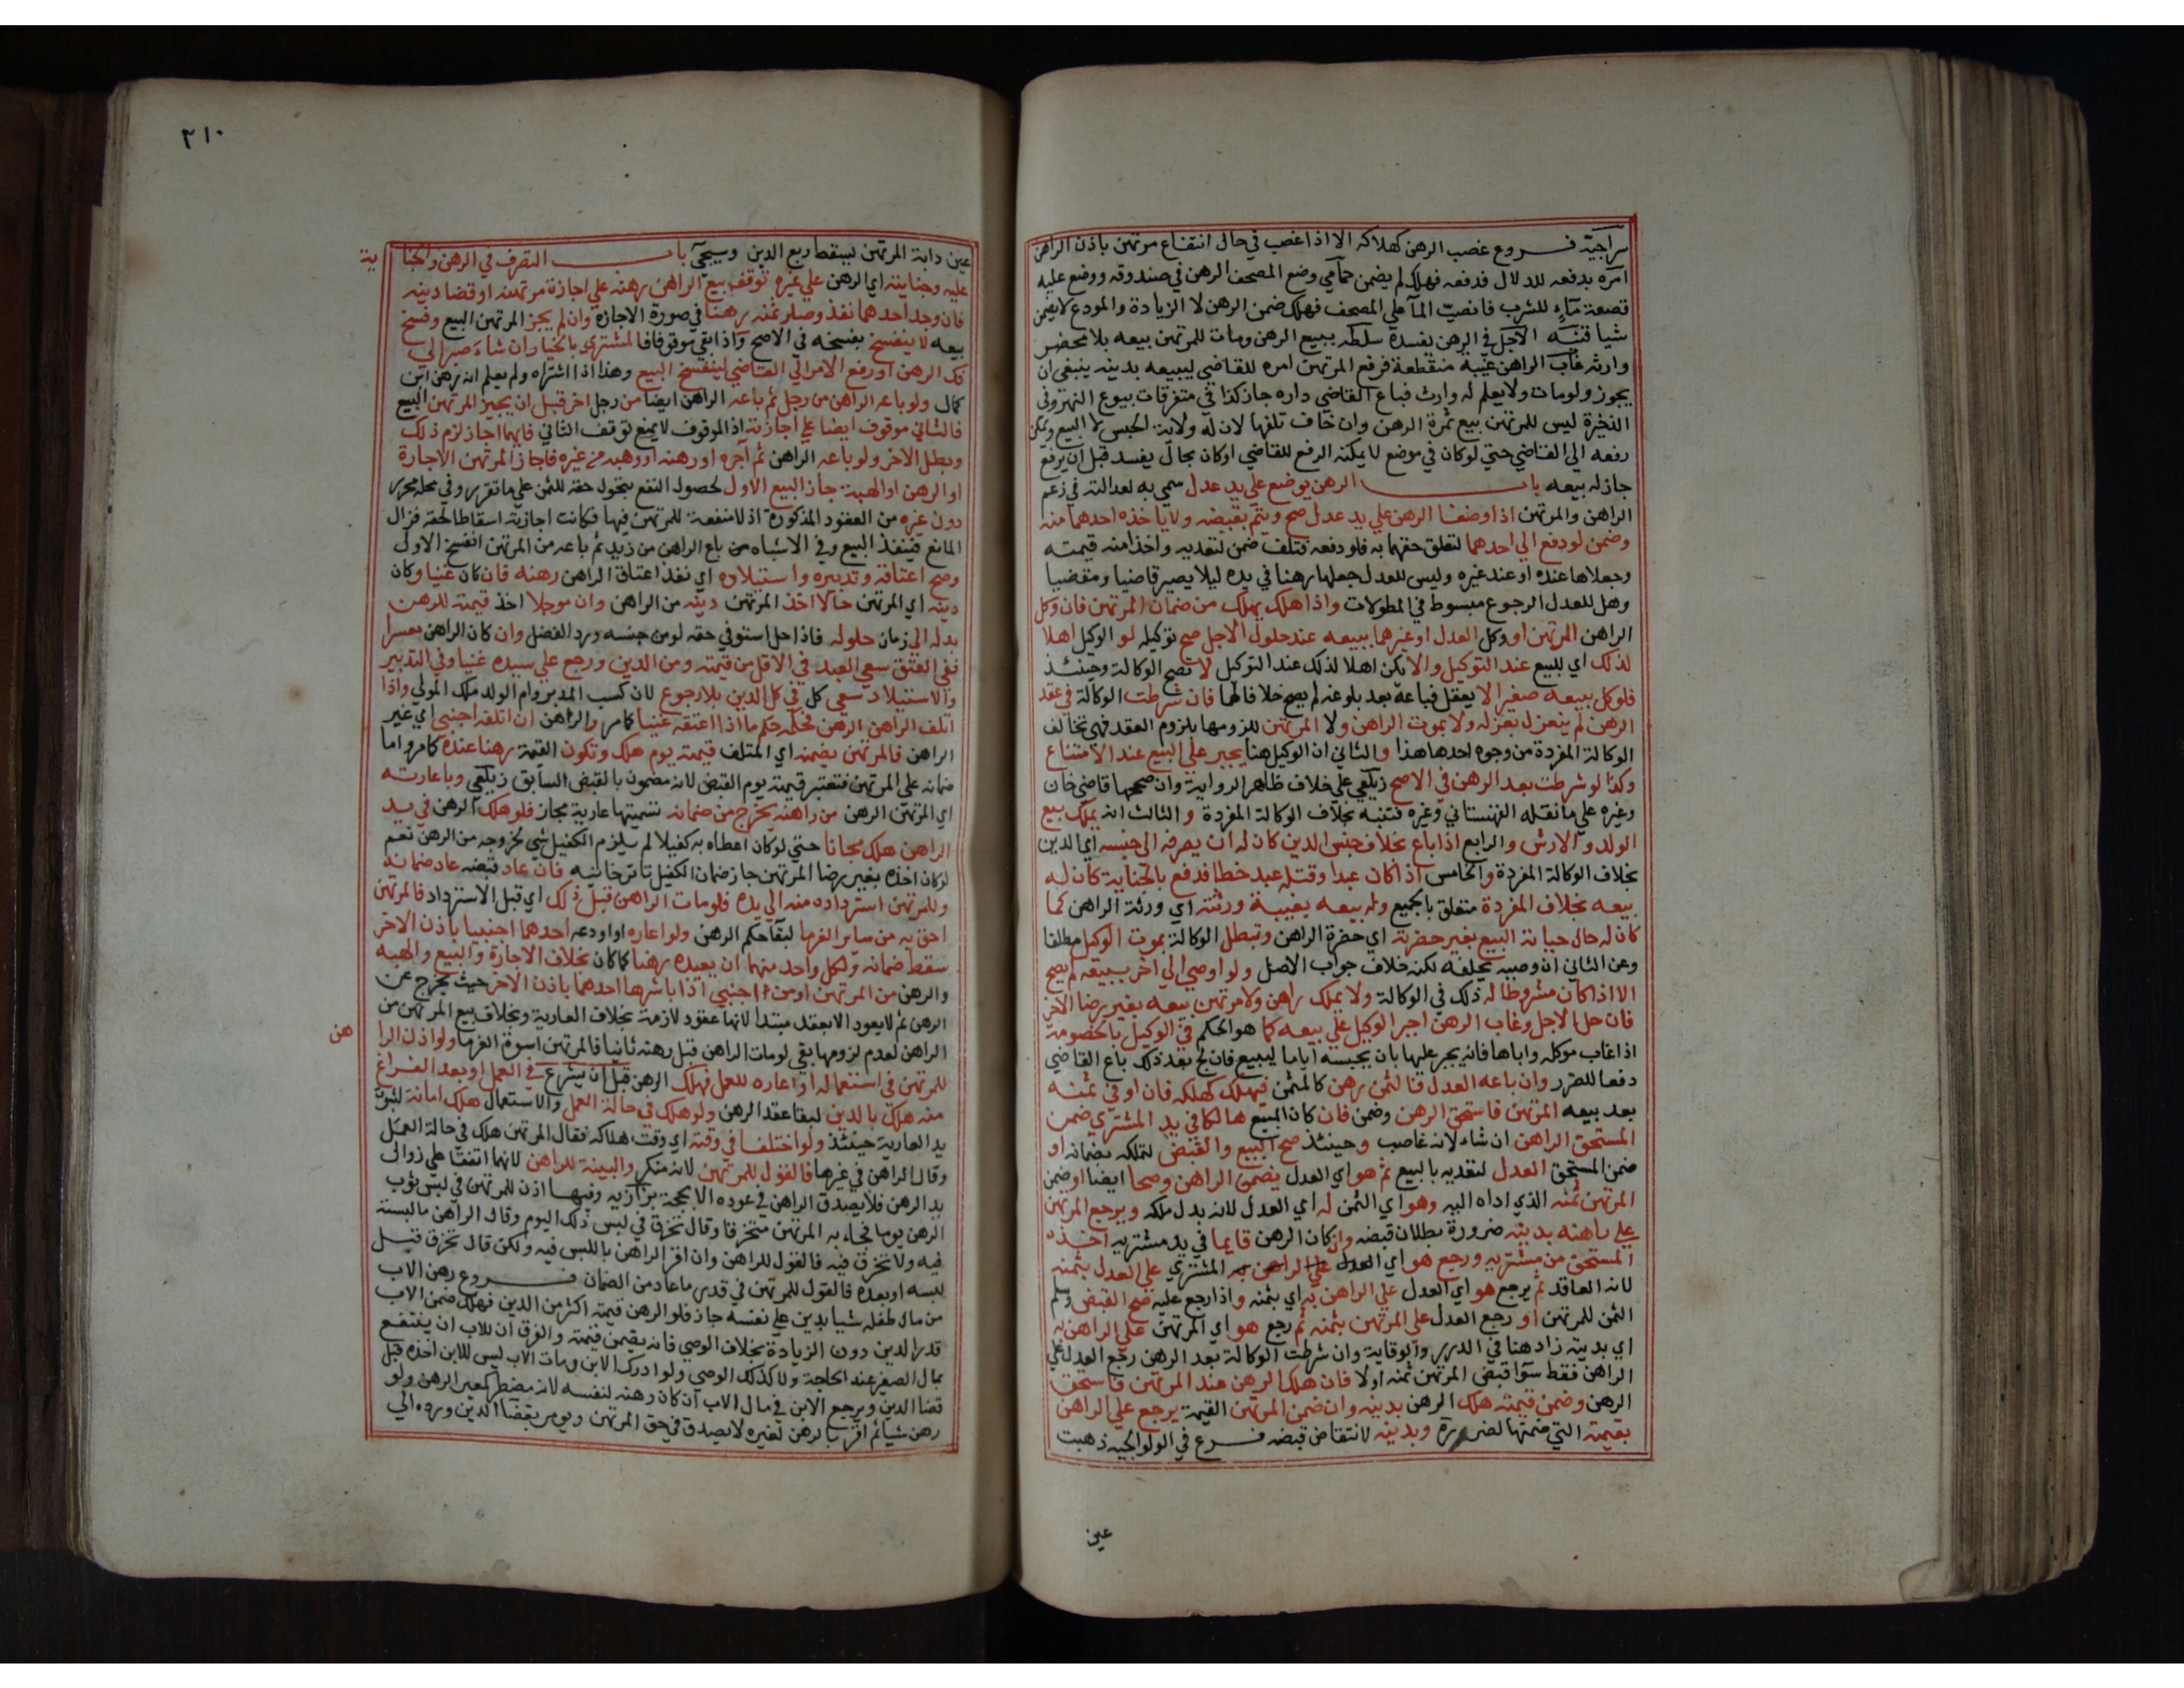 سراجية فـروع غصب الرهن كهلاكه الا اذا غصب في حال انتفاع مرتهن باذن الراهن
امره بدفعه للدلال فدفعه فهلك لم يضمن حمامي وضع المصحف الرهن في صندوقه ووضع عليه
قصعة ماء للشرب فانصب الماء علي المصحف فهلك ضمن الرهن لا الزيادة والمودع لا يضمن
شيا قنيه الاجل في الرهن يفسده سلطه ببيع الرهن ومات للمرتهن بيعه بلا محضر
وارثه غاب الراهن غيبة منقطعة فرفع المرتهن امره للقاضي ليبيعه بدينه ينبغي ان
يجوز ولو مات ولا يعلم له وارث فباع القاضي داره جاز كذا في متفرقات بيوع النهر وفي
الذخيرة ليس للمرتهن بيع ثمرة الرهن وان خاف تلفها لان له ولاية الحبس لا البيع ويمكن
رفعه الي القاضي حتي لو كان في موضع لا يمكنه الرفع للقاضي او كان بحال يفسد قبل ان يرفع
جاز له بيعه باب الرهن يوضع علي يد عدل سمي به لعدالته في زعم
الراهن والمرتهن اذا وضعا الرهن علي يد عدل صح ويتم بقبضه ولا ياخذه احدهما منه
وضمن لو دفع الي احدهما لتعلق حقهما به فلو دفعه فتلف ضمن لتعديه واخذا منه قيمته
وجعلاها عنده او عند غيره وليس للعدل جعلها رهنا في يده ليلا يصير قاضيا ومقضيا
وهل للعدل الرجوع مبسوط في المطولات واذا هلك يهلك من ضمان المرتهن فان وكل
الراهن المرتهن او وكل العدل او غيرهما ببيعه عند حلول الاجل صح توكيله لو الوكيل اهلا
لذلك اي للبيع عند التوكيل والا يكن اهلا لذلك عند التوكيل لا تصح الوكالة وحينئذ
فلو وكل ببيعه صغيرا لا يعقل فباعه بعد بلوغه لم يصح خلافا لهما فان شرطت الوكالة في عقد
الرهن لم ينعزل بعزله ولا بموت الراهن ولا المرتهن للزومها بلزوم العقد فهي تخالف
الوكالة المفردة من وجوه احدها هذا والثاني ان الوكيل هنا يجبر علي البيع عند الامتناع
وكذا لو شرطت بعد الرهن في الاصح زيلعي علي خلاف ظاهر الرواية وان صححها قاضي خان
وغيره علي ما نقله القهستاني وغيره فتنبه بخلاف الوكالة المفردة والثالث انه يملك بيع
الولد والارش والرابع اذا باع بخلاف جنس الدين كان له ان يصرفه الي جنسه اي الدين
بخلاف الوكالة المفردة والخامس اذا كان عبدا وقتله عبد خطا فدفع بالجناية كان له
بيعه بخلاف المفردة متعلق بالجميع وله بيعه بغيبة ورثته اي ورثة الراهن كما
كان له حال حياته البيع بغير حضرته اي حضرة الراهن وتبطل الوكالة بموت الوكيل مطلقا
وعن الثاني ان وصيه يخلفه لكنه خلاف جواب الاصل ولو اوصي الي اخر ببيعه لم يصح
الا اذا كان مشروطا له ذلك في الوكالة ولا يملك راهن ولا مرتهن بيعه بغير رضا الاخر
فان حل الاجل وغاب الرهن اجبر الوكيل علي بيعه كما هو الحكم في الوكيل بالخصومة
اذا غاب موكله واباها فانه يجبر عليها بان يحبسه اياما ليبيع فان لج بعد ذلك باع القاضي
دفعا للضرر وان باعه العدل فالثمن رهن كالمثمن فيهلك كهلكه فان اوفي ثمنه
بعد بيعه المرتهن فاستحق الرهن وضمن فان كان المبيع هالكا في يد المشتري ضمن
المستحق الراهن ان شاء لانه غاصب وحينئذ صح البيع والقبض لتملكه بضمانه او
ضمن المستحق العدل لتعديه بالبيع ثم هو اي العدل يضمن الراهن وصحا ايضا او ضمن
المرتهن ثمنه الذي اداه اليه وهو اي الثمن له اي العدل لانه بدل ملكه ويرجع المرتهن
علي راهنه بدينه ضرورة بطلان قبضه وان كان الرهن قايما في يد مشتريه اخذه
المستحق من مشتريه ورجع هو اي العدل علي الراهن به المشتري علي العدل بثمنه
لانه العاقد ثم يرجع هو اي العدل علي الراهن به اي بثمنه واذا رجع عليه صح القبض وسلم
الثمن للمرتهن او رجع العدل علي المرتهن بثمنه ثم رجع هو اي المرتهن علي الراهن به
اي بدينه زاد هنا في الدرر والوقاية وان شرطت الوكالة بعد الرهن رجع العدل علي
الراهن فقط سوا قبض المرتهن ثمنه اولا فان هلك الرهن عند المرتهن فاستحق
الرهن وضمن قيمته هلك الرهن بدينه وان ضمن المرتهن القيمة يرجع علي الراهن
بقيمته التي ضمنها لضرره وبدينه لانتقاض قبضه فـرع في الولوالجيه ذهبت
عين
٢١٠
عين دابة المرتهن ليسقط ربع الدين وسيجيء باب التصرف في الرهن والجنا
ية
عليه وجنايته اي الرهن علي غيره توقف بيع الراهن رهنه علي اجازة مرتهنه او قضا دينه
فان وجد احدهما نفذ وصار ثمنه رهنا في صورة الاجازه وان لم يجز المرتهن البيع وفسخ
بيعه لا ينفسخ بفسخه في الاصح واذا بقي موقوفا فالمشتري بالخيار ان شاء صبر الي
فك الرهن او رفع الامر الي القاضي ليفسخ البيع وهذا اذا اشتراه ولم يعلم انه رهن ابن
كمال ولو باعه الراهن من رجل ثم باعه الراهن ايضا من رجل اخر قبل ان يجيز المرتهن البيع
فالثاني موقوف ايضا علي اجازته اذ الموقوف لا يمنع توقف الثاني فايهما اجاز لزم ذلك
وبطل الاخر ولو باعه الراهن ثم آجره او رهنه او وهبه من غيره فاجاز المرتهن الاجارة
او الرهن او الهبة جاز البيع الاول لحصول النفع بتحول حقه للثمن علي ما تقرر وفي محله محرر
دون غيره من العقود المذكورة اذ لا منفعة للمرتهن فيها فكانت اجازته اسقاطا لحقه فزال
المانع فينفذ البيع وفي الاشباه من باع الراهن من زيد ثم باعه من المرتهن انفسخ الاول
وصح اعتاقه وتدبيره واستيلاده اي نفذ اعتاق الراهن رهنه فان كان غنيا وكان
دينه اي المرتهن حالا اخذ المرتهن دينه من الراهن وان موجلا اخذ قيمته للرهن
بدله الي زمان حلوله فاذا حل استوفي حقه لو من جنسه ورد الفضل وان كان الراهن معسرا
ففي العتق سعي العبد في الاقل من قيمته ومن الدين ورجع علي سيده غنيا وفي التدبير
والاستيلاد سعي كل في كل الدين بلا رجوع لان كسب المدبر وام الولد ملك المولي واذا
اتلف الراهن الرهن فحكمه حكم ما اذا اعتقه غنيا كما مر والراهن ان اتلفه اجنبي اي غير
الراهن فالمرتهن يضمنه اي المتلف قيمته يوم هلك وتكون القيمة رهنا عنده كما مر واما
ضمانه علي المرتهن فتعتبر قيمته يوم القبض لانه مضمون بالقبض السابق زيلعي وباعارته
اي المرتهن الرهن من راهنه يخرج من ضمانه تسميتها عارية مجاز فلو هلك الرهن في يد
الراهن هلك مجانا حتي لو كان اعطاه به كفيلا لم يلزم الكفيل شي لخروجه من الرهن نعم
لو كان اخذه بغير رضا المرتهن جاز ضمان الكفيل تاترخانيه فان عاد قبضه عاد ضمانه
وللمرتهن استرداده منه الي يده فلو مات الراهن قبل ذلك اي قبل الاسترداد فالمرتهن
احق به من ساير الغرما لبقا حكم الرهن ولو اعاره او اودعه احدهما اجنبيا باذن الاخر
سقط ضمانه ولكل واحد منهما ان يعيده رهنا كما كان بخلاف الاجارة والبيع والهبه
والرهن من المرتهن او من اجنبي اذا باشرها احدهما باذن الاخر حيث يخرج عن
الرهن ثم لا يعود الا بعقد مبتدا لانها عقود لازمة بخلاف العارية وبخلاف بيع المرتهن من
الراهن لعدم لزومها بقي لو مات الراهن قبل رهنه ثانيا فالمرتهن اسوة الغرما ولو اذن الرا
هن
للمرتهن في استعماله او اعاره للعمل فهلك الرهن قبل ان يشرع في العمل او بعد الفراغ
منه هلك بالدين لبقا عقد الرهن ولو هلك في حالة العمل والاستعمال هلك امانة لثبوت
يد العارية حينئذ ولو اختلفا في وقته اي وقت هلاكه فقال المرتهن هلك في حالة العمل
وقال الراهن في غيرها فالقول للمرتهن لانه منكر والبينة للراهن لانهما اتفقا علي زوال
يد الرهن فلا يصدق الراهن في عوده الا بحجة بزازيه وفيها اذن للمرتهن في لبس ثوب
الرهن يوما فجاء به المرتهن متخرقا وقال تخرق في لبس ذلك اليوم وقال الراهن ما لبسته
فيه ولا تخرق فيه فالقول للراهن وان اقر الراهن باللبس فيه ولكن قال تخرق قبل
لبسه او بعده فالقول للمرتهن في قدر ما عاد من الضمان فـروع رهن الاب
من مال طفله شيا بدين علي نفسه جاز فلو الرهن قيمته اكثر من الدين فهلك ضمن الاب
قدر الدين دون الزيادة بخلاف الوصي فانه يضمن قيمته والفرق ان للاب ان ينتفع
بمال الصغير عند الحاجة ولا كذلك الوصي ولو ادرك الابن ومات الاب ليس للابن اخذه قبل
قضا الدين ويرجع الابن في مال الاب ان كان رهنه لنفسه لانه مضطر كمعير الرهن ولو
رهن شيا ثم اقر بالرهن لغيره لا يصدق في حق المرتهن ويومر بقضا الدين ورده الي